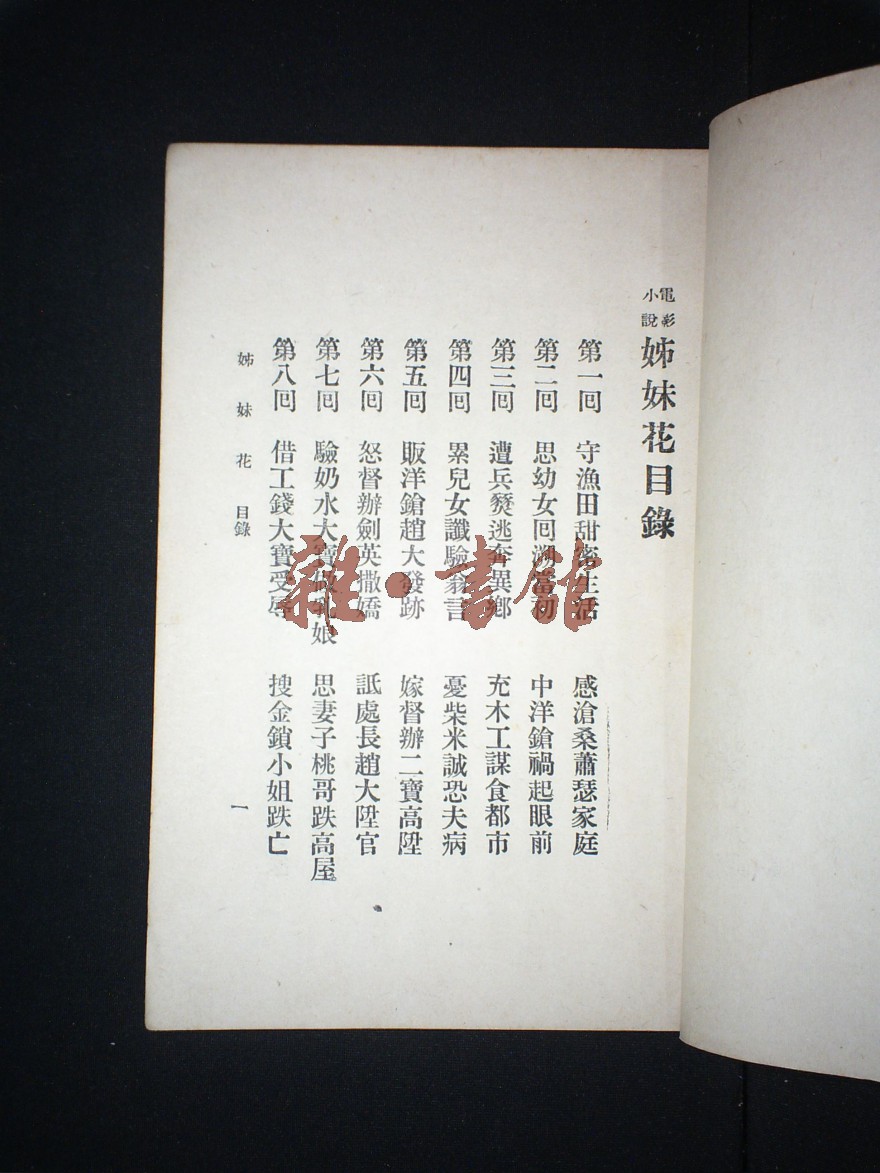 電影小說
姊妹花目錄
第一回 守漁田甜密生活 感滄桑蕭瑟家庭
第二回 思幼女回溯當初 中洋鎗禍起眼前
第三回 遭兵燹逃奔異鄉 充木工謀食都市
第四回 累兒女讖驗翁言 憂柴米誠恐夫病
第五回 販洋鎗趙大發跡 嫁督辦二寶高陞
第六回 怒督辦劍英撒嬌 詆處長趙大陞官
第七回 驗奶水大寶做乳娘 思妻子桃哥跌高屋
第八回 借工錢大寶受辱 搜金鎖小姐跌亡
姊妹花 目錄
一
雜·書館